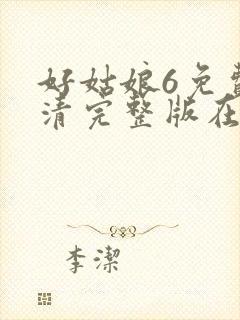 好姑娘6免費
清完整版在
李潔